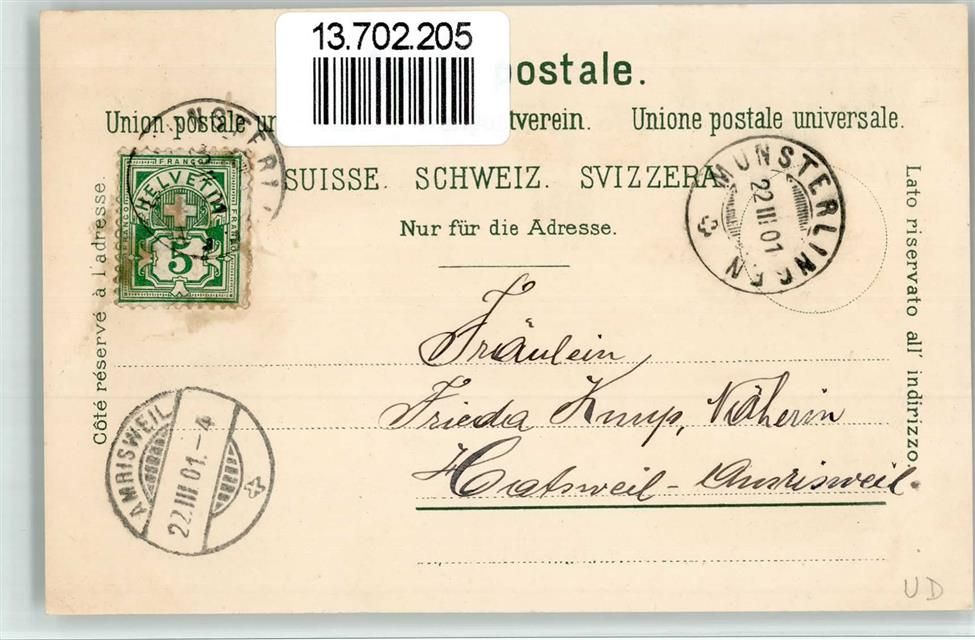 13.702.205
postale.
Union postale un tverein. Unione postale universale.
SUISSE. SCHWEIZ. SVIZZERA
Nur für die Adresse.
Côté réservé à l'adresse.
Lato riservato all' indirizzo
FRANCO
HELVETIA
5
MÜNSTERLINGEN
22 III 01
AMRISWEIL
22.III.01.-4
Fräulein
Frieda Knup, Näherin
Hatsweil - Amrisweil.
UD